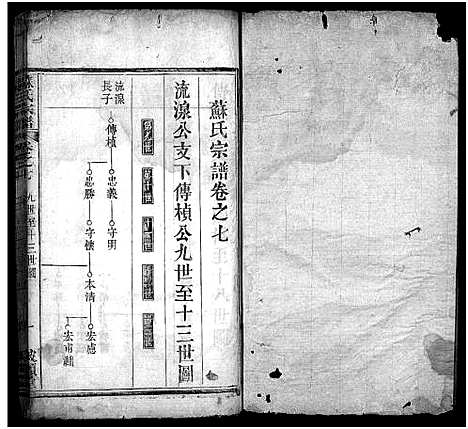 蘇氏宗譜卷之七
流湶公支下傳楨公九世至十三世圖
第九世
第十世
流湶長子
傳楨
忠義
守明
忠勝
守懷
本清
宏慮
宏甫
蘇氏宗譜
卷之七
九世至十三世圖